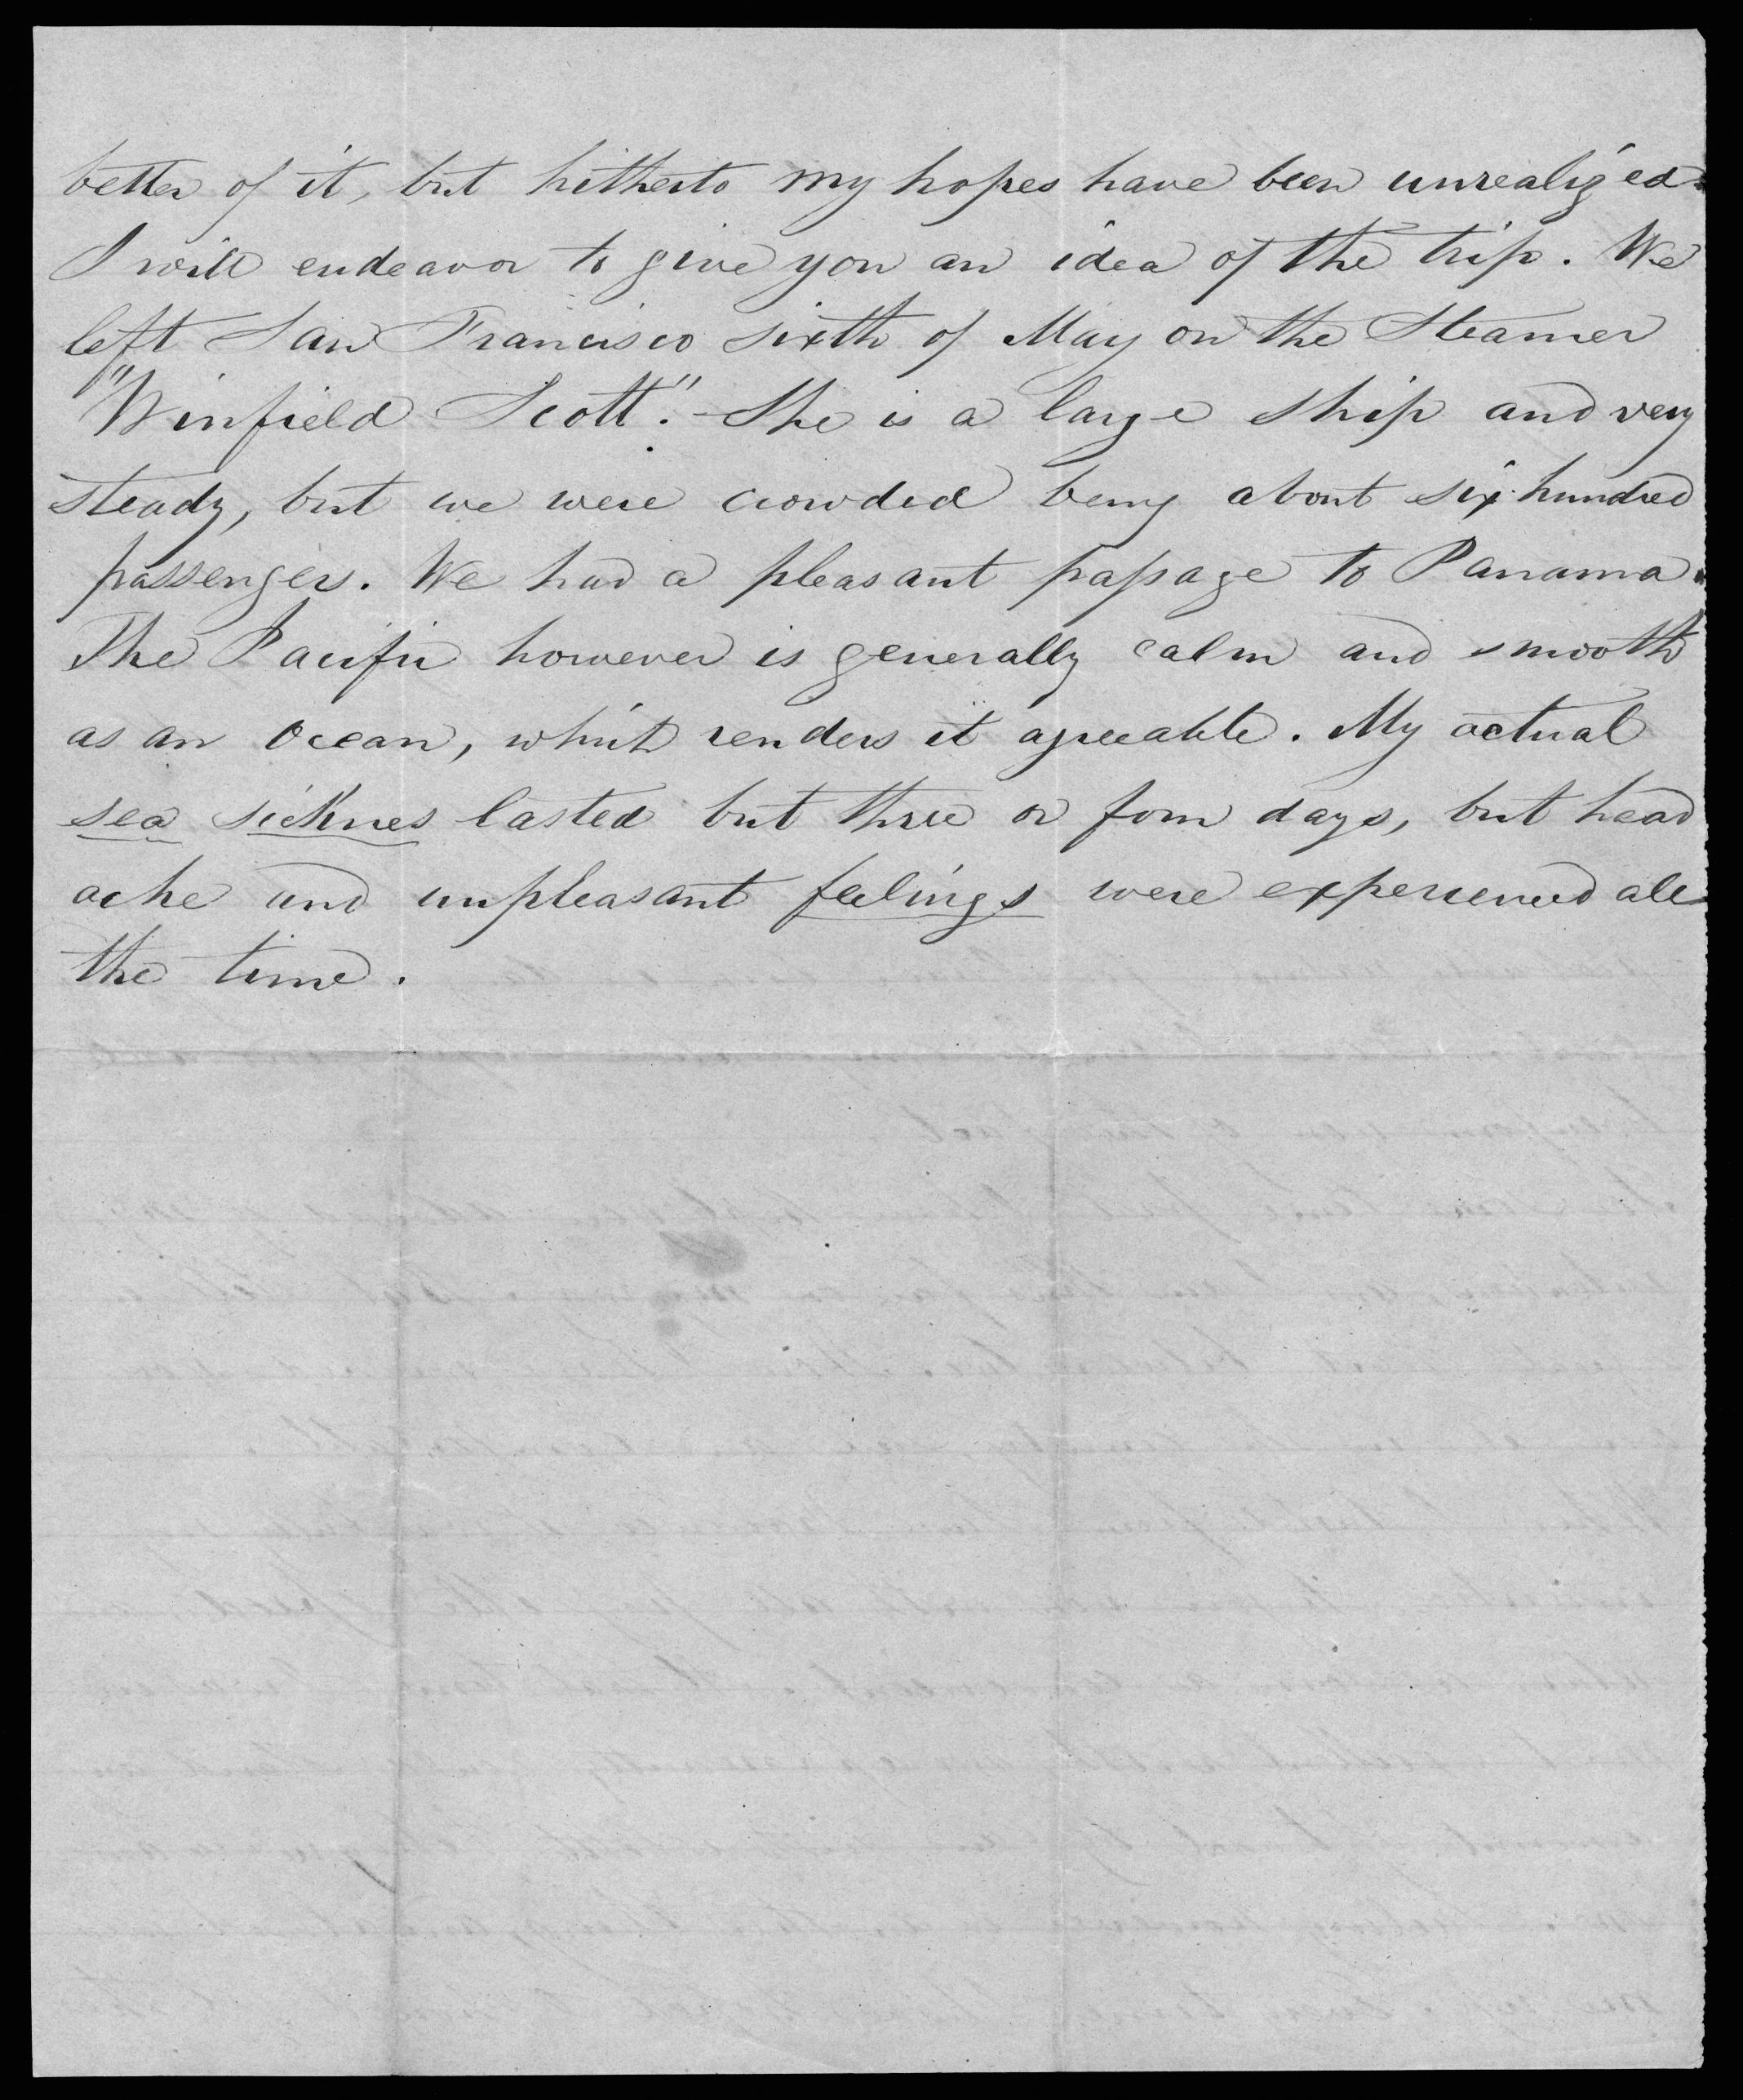 better of it, but hitherto my hopes have been unrealized.
I will endeavor to give you an idea of the trip. We
left San Francisco sixth of May on the Steamer
"Winfield Scott." She is a large ship and very
steady, but we were crowded being about six hundred
passengers. We had a pleasant passage to Panama.
The Pacific however is generally calm and smooth
as an Ocean, which renders it agreeable. My actual
sea sicknes lasted but three or four days, but head
ache and unpleasant feelings were experienced all
the time.